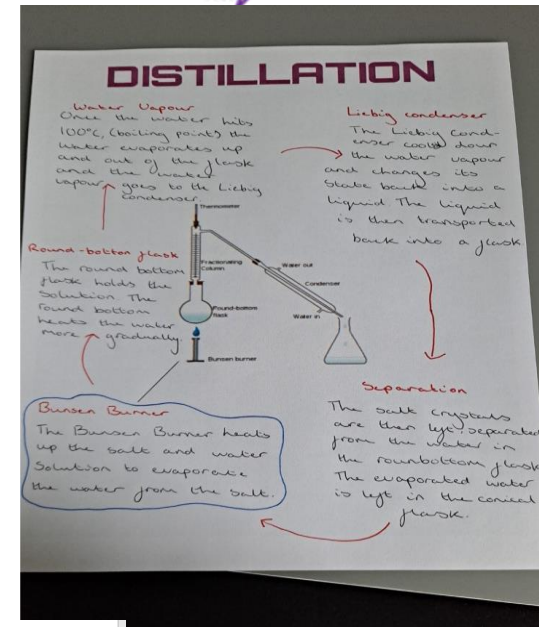 DISTILLATION
Water Vapour
Once the water hits
100°c, (boiling point) the
water evaporates up
and out of the flask
and the water
vapour goes to the Liebig
condenser.
Liebig condenser
The Liebig Cond-
enser cools down
the water vapour
and changes its
state back into a
liquid The liquid
is then transported
back into a flask
Thermometer
Round-bottom flask
The round bottom
flask holds the
solution. The
round bottom
heats the water
more gradually.
Fractionating
Column
Water out
Condenser
Round-bottom
flask
Water in
Bunsen burner
Bunsen Burner
The Bunsen Burner heats
up the salt and water
Solution to evaporate
the water from the salt.
Separation
The salt crystals
are then left separated
from the water in
the rounbottom flask
The evaporated water
is left in the conical
flask.